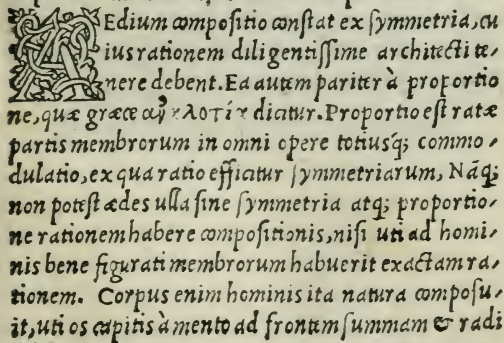 AEdium compositio constat ex symmetria, cu
ius rationem diligentissime architecti te-
nere debent. Ea autem paritur à proportio
ne, quæ græce dicitur. Proportio est ratæ
partis membrorum in omni opere totiusq́; commo-
dulatio, ex qua ratio efficitur symmetriarum, Nãq;
non potest ædes ulla sine symmetria atq; proportio-
ne rationem habere compositionis, nisi uti ad homi-
nis bene figurati membrorum habuerit exactam ra-
tionem. Corpus enim hominis ita natura composu-
it, uti os capitis à mento ad frontem summam & radi